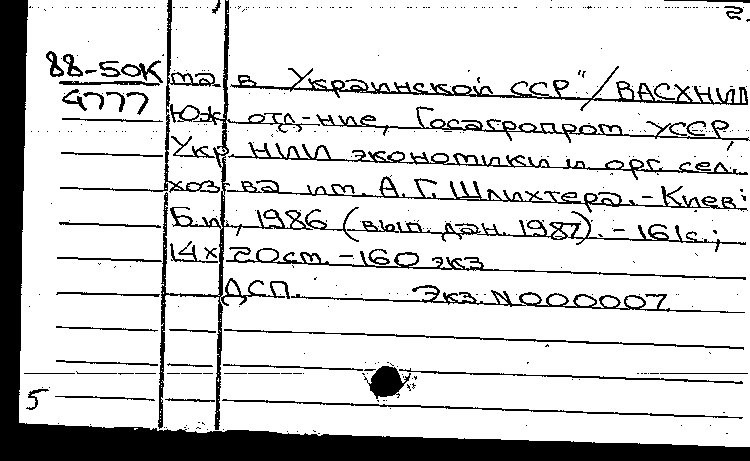 2.
88-50К та в Украинской ССР"/ВАСХНИЛ
4777 Юж. отд-ние, Госагропром УССР,
Укр. НИИ экономики и орг. сел.
хоз-ва им. А.Г. Шлихтера.-Киев:
Б.и., 1986 (вып. дан. 1987).-161с.;
14х20см.-160 экз
ДСП. Экз. N000007
5